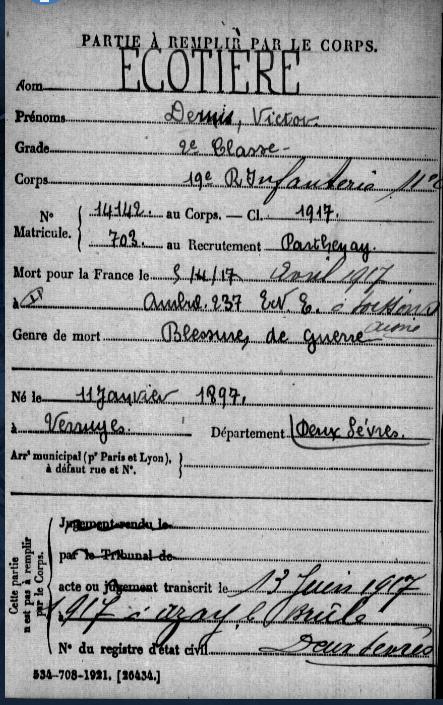 PARTIE À REMPLIR PAR LE CORPS.
Nom ECOTIÈRE
Prénoms Denis, Victor
Grade 2e Classe
Corps 19e R Infanterie 11e
N° Matricule. { 14142. au Corps. — Cl. 1917.
703. au Recrutement Parthenay.
Mort pour la France le 5/4/17 Avril 1917
à Ambce. 237 à Soissons Aisne
Genre de mort Blessures de guerre
Né le 11 Janvier 1897.
à Verruyes. Département Deux Sèvres.
Arrt municipal (pr Paris et Lyon), à défaut rue et N°. }
Cette partie n'est pas à remplir par le Corps.
Jugement rendu le
par le Tribunal de
acte ou jugement transcrit le 13 Juin 1917
1917 à Azay le Brûlé
N° du registre d'état civil Deux Sèvres
534-708-1921. [26434.]